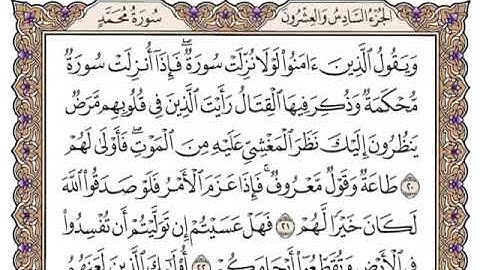 الجزء السادس والعشرون سورة محمد
وَيَقُولُ الَّذِينَ ءَامَنُوا لَوْلَا نُزِّلَتْ سُورَةٌ ۖ فَإِذَا أُنزِلَتْ سُورَةٌ
مُّحْكَمَةٌ وَذُكِرَ فِيهَا الْقِتَالُ رَأَيْتَ الَّذِينَ فِي قُلُوبِهِم مَّرَضٌ
يَنظُرُونَ إِلَيْكَ نَظَرَ الْمَغْشِيِّ عَلَيْهِ مِنَ الْمَوْتِ ۖ فَأَوْلَىٰ لَهُمْ
٢٠ طَاعَةٌ وَقَوْلٌ مَّعْرُوفٌ ۚ فَإِذَا عَزَمَ الْأَمْرُ فَلَوْ صَدَقُوا اللَّهَ
لَكَانَ خَيْرًا لَّهُمْ ٢١ فَهَلْ عَسَيْتُمْ إِن تَوَلَّيْتُمْ أَن تُفْسِدُوا
فِي الْأَرْضِ وَتُقَطِّعُوا أَرْحَامَكُمْ ٢٢ أُولَٰئِكَ الَّذِينَ لَعَنَهُمُ